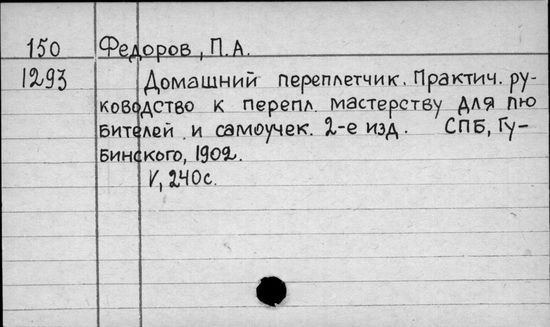 150 Федоров, П.А.
1293 Домашний переплетчик. Практич. ру-
ководство к перепл. мастерству для лю
бителей и самоучек. 2-е изд. СПБ, Гу-
бинского, 1902.
V, 240с.